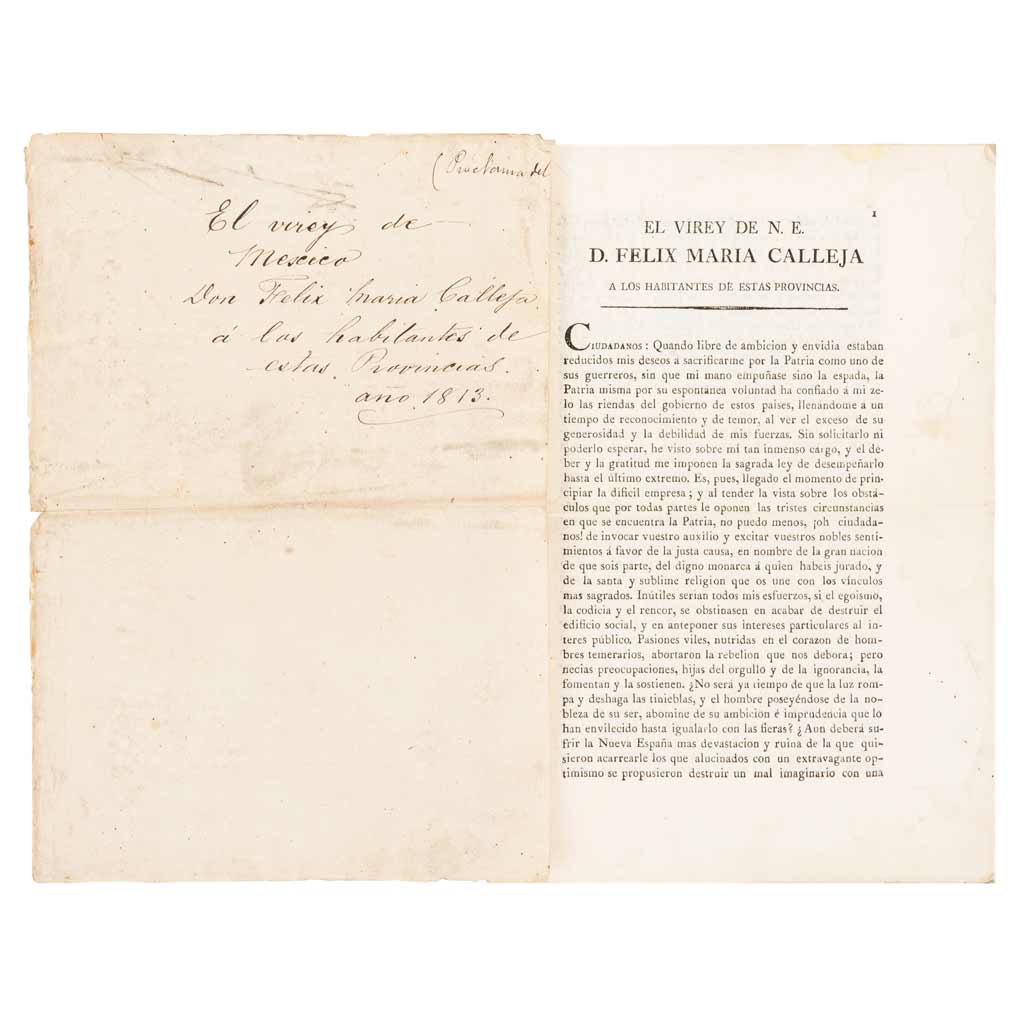 (Proclama del
El virey de
Mexico
Don Felix Maria Calleja
á los habitantes de
estas Provincias.
año 1813.
1
EL VIREY DE N. E.
D. FELIX MARIA CALLEJA
A LOS HABITANTES DE ESTAS PROVINCIAS.
CIUDADANOS: Quando libre de ambicion y envidia estaban
reducidos mis deseos á sacrificarme por la Patria como uno de
sus guerreros, sin que mi mano empuñase sino la espada, la
Patria misma por su espontánea voluntad ha confiado á mi ze-
lo las riendas del gobierno de estos paises, llenándome á un
tiempo de reconocimiento y de temor, al ver el exceso de su
generosidad y la debilidad de mis fuerzas. Sin solicitarlo ni
poderlo esperar, he visto sobre mí tan inmenso cargo, y el de-
ber y la gratitud me imponen la sagrada ley de desempeñarlo
hasta el último extremo. Es, pues, llegado el momento de prin-
cipiar la dificil empresa; y al tender la vista sobre los obstá-
culos que por todas partes le oponen las tristes circunstancias
en que se encuentra la Patria, no puedo menos, ¡oh ciudada-
nos! de invocar vuestro auxilio y excitar vuestros nobles senti-
mientos á favor de la justa causa, en nombre de la gran nacion
de que sois parte, del digno monarca á quien habeis jurado, y
de la santa y sublime religion que os une con los vínculos
mas sagrados. Inútiles serian todos mis esfuerzos, si el egoismo,
la codicia y el rencor, se obstinasen en acabar de destruir el
edificio social, y en anteponer sus intereses particulares al in-
teres público. Pasiones viles, nutridas en el corazon de hom-
bres temerarios, abortaron la rebelion que nos debora; pero
necias preocupaciones, hijas del orgullo y de la ignorancia, la
fomentan y la sostienen. ¿No será ya tiempo de que la luz rom-
pa y deshaga las tinieblas, y el hombre poseyéndose de la no-
bleza de su ser, abomine de su ambicion é imprudencia que lo
han envilecido hasta igualarlo con las fieras? ¿Aun deberá su-
frir la Nueva España mas devastacion y ruina de la que qui-
sieron acarrearle los que alucinados con un extravagante op-
timismo se propusieron destruir un mal imaginario con una